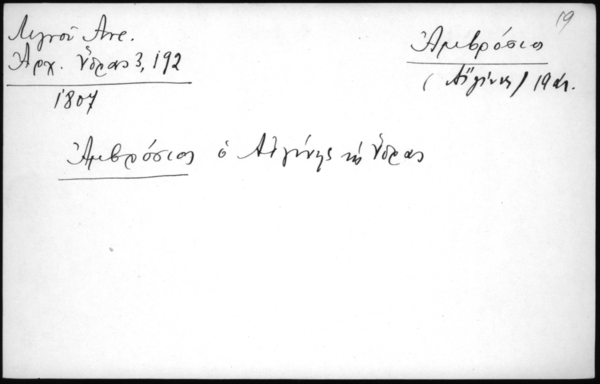 19
Λιγνοῦ Ἀντ.
Ἀρχ. Ὕδρας 3, 192
1807
Ἀμβρόσιος
(Αἰγίνης) 19 αἰ.
Ἀμβρόσιος ὁ Αἰγίνης κ Ὕδρας